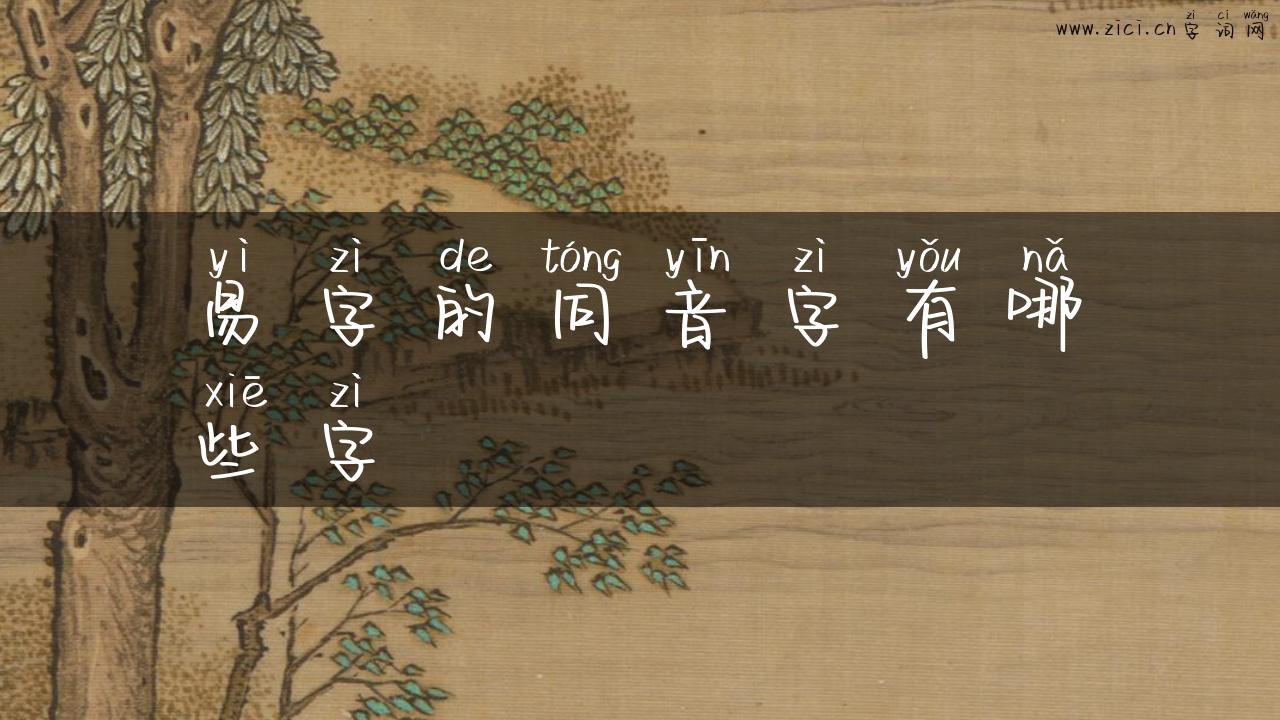 zì cí wǎng
www.zici.cn 字词网
yì zì de tóng yīn zì yǒu nǎ
易字的同音字有哪
xiē zì
些字